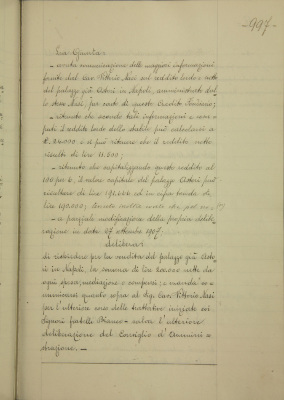 997.
La Giunta:
- avuta comunicazione delle maggiori informazioni
fornite dal Cav. Vittorio Masi sul reddito lordo e netto
del palazzo già Astuti in Napoli, amministrato dal
lo stesso Masi, per conto di questo Credito Fondiario;
- ritenuto che secondo tali informazioni e cal
puti il reddito lordo dello stabile può calcolarsi a
L. 24.000 e si può ritenere che il reddito netto
risulti di lire 11.500;
- ritenuto che capitalizzando questo reddito al
100 per 6, il valore capitale del palazzo Astuti può
risultare di lire 191.666 ed in cifra tonda di
lire 190.000;
- a parziale modificazione della propria delibe
razione in data 27 settembre 1907;
delibera
di richiedere per la vendita del palazzo già Astu
ti in Napoli, la somma di lire 200.000 nette da
ogni spesa, mediazione o compensi; e manda a co
municarsi quanto sopra al Sig. Cav. Vittorio Masi
per l'ulteriore corso delle trattative iniziate coi
Signori fratelli Bianco - salva l'ulteriore
deliberazione del Consiglio d'Ammini
strazione. -